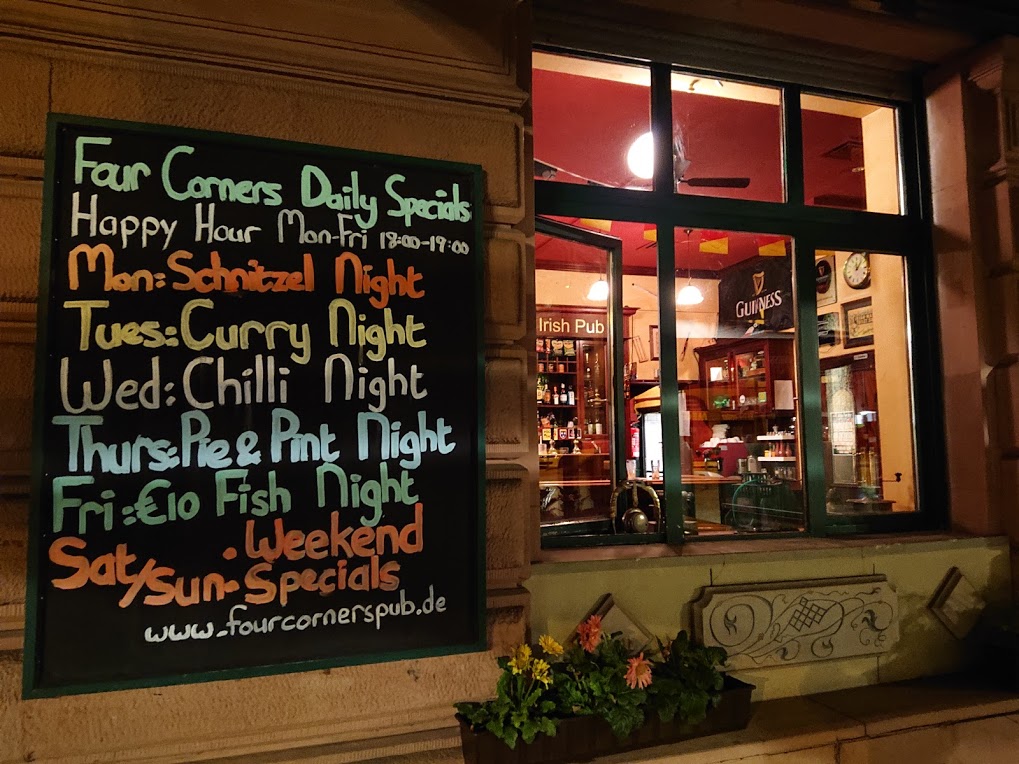 Four Corners Daily Specials
Happy Hour Mon-Fri 18:00-19:00
Mon: Schnitzel Night
Tues: Curry Night
Wed: Chilli Night
Thurs: Pie & Pint Night
Fri: €10 Fish Night
Sat/Sun: Weekend
Specials
www.fourcornerspub.de
Irish Pub
GUINNESS